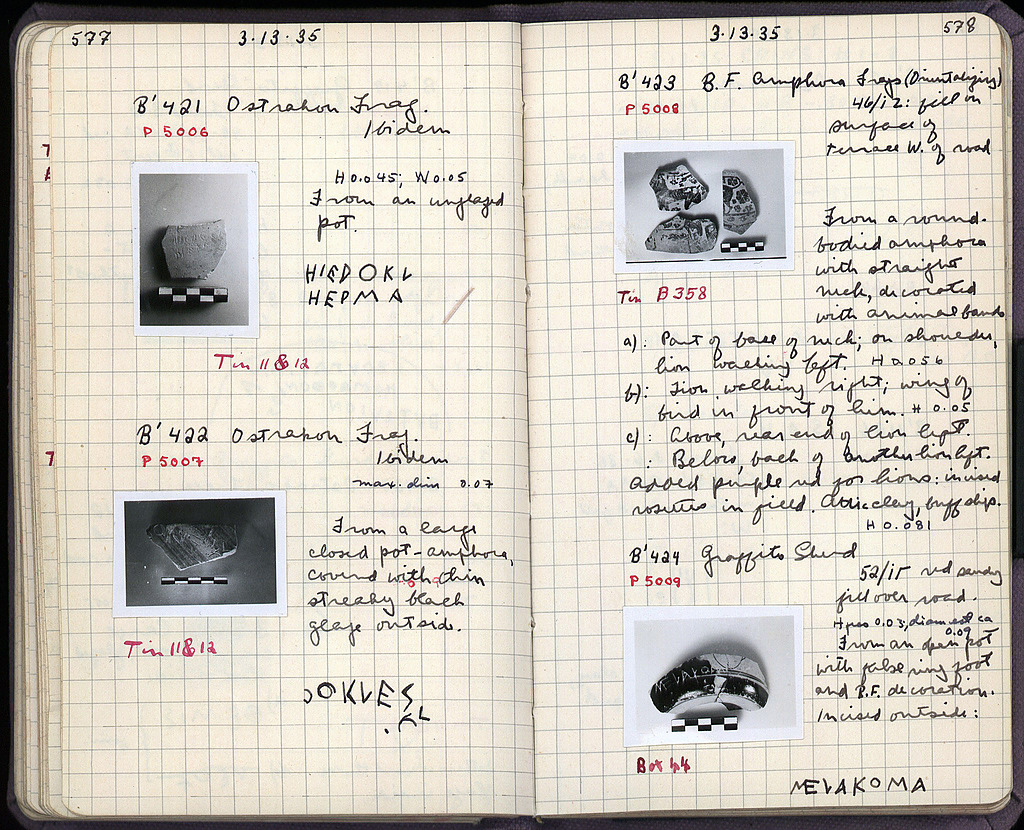 577
3·13·35
B'421 Ostrakon Frag.
P 5006
Ibidem
H 0.045; W 0.05
From an unglazed
pot.
HIEDOKL
HEPMA
Tin 11 & 12
B'422 Ostrakon Frag.
P 5007
Ibidem
max. dim 0.07
From a large
closed pot-amphora,
covered with thin
streaky black
glaze outside.
Tin 11 & 12
OKLES
578
3·13·35
B'423 B.F. Amphora Frags (Orientalizing)
P 5008
46/ΙΖ: fill on
surface of
terrace W. of road
From a round-
bodied amphora
with straight
neck, decorated
with animal bands
Tin B 358
a): Part of base of neck; on shoulder,
lion walking left. H 0.056
b): Lion walking right; wing of
bird in front of him. H 0.05
c): Above, rear end of lion left.
: Below, back of another lion left.
Added purple red for lions: incised
rosettes in field. Attic clay, buff slip.
H 0.081
B'424 Graffito Sherd
P 5009
52/ΙΓ red sandy
fill over road.
H pres 0.03; diam est ca
0.09
From an open pot
with false ring foot
and R.F. decoration.
Incised outside:
Box 44
MELAKOMA